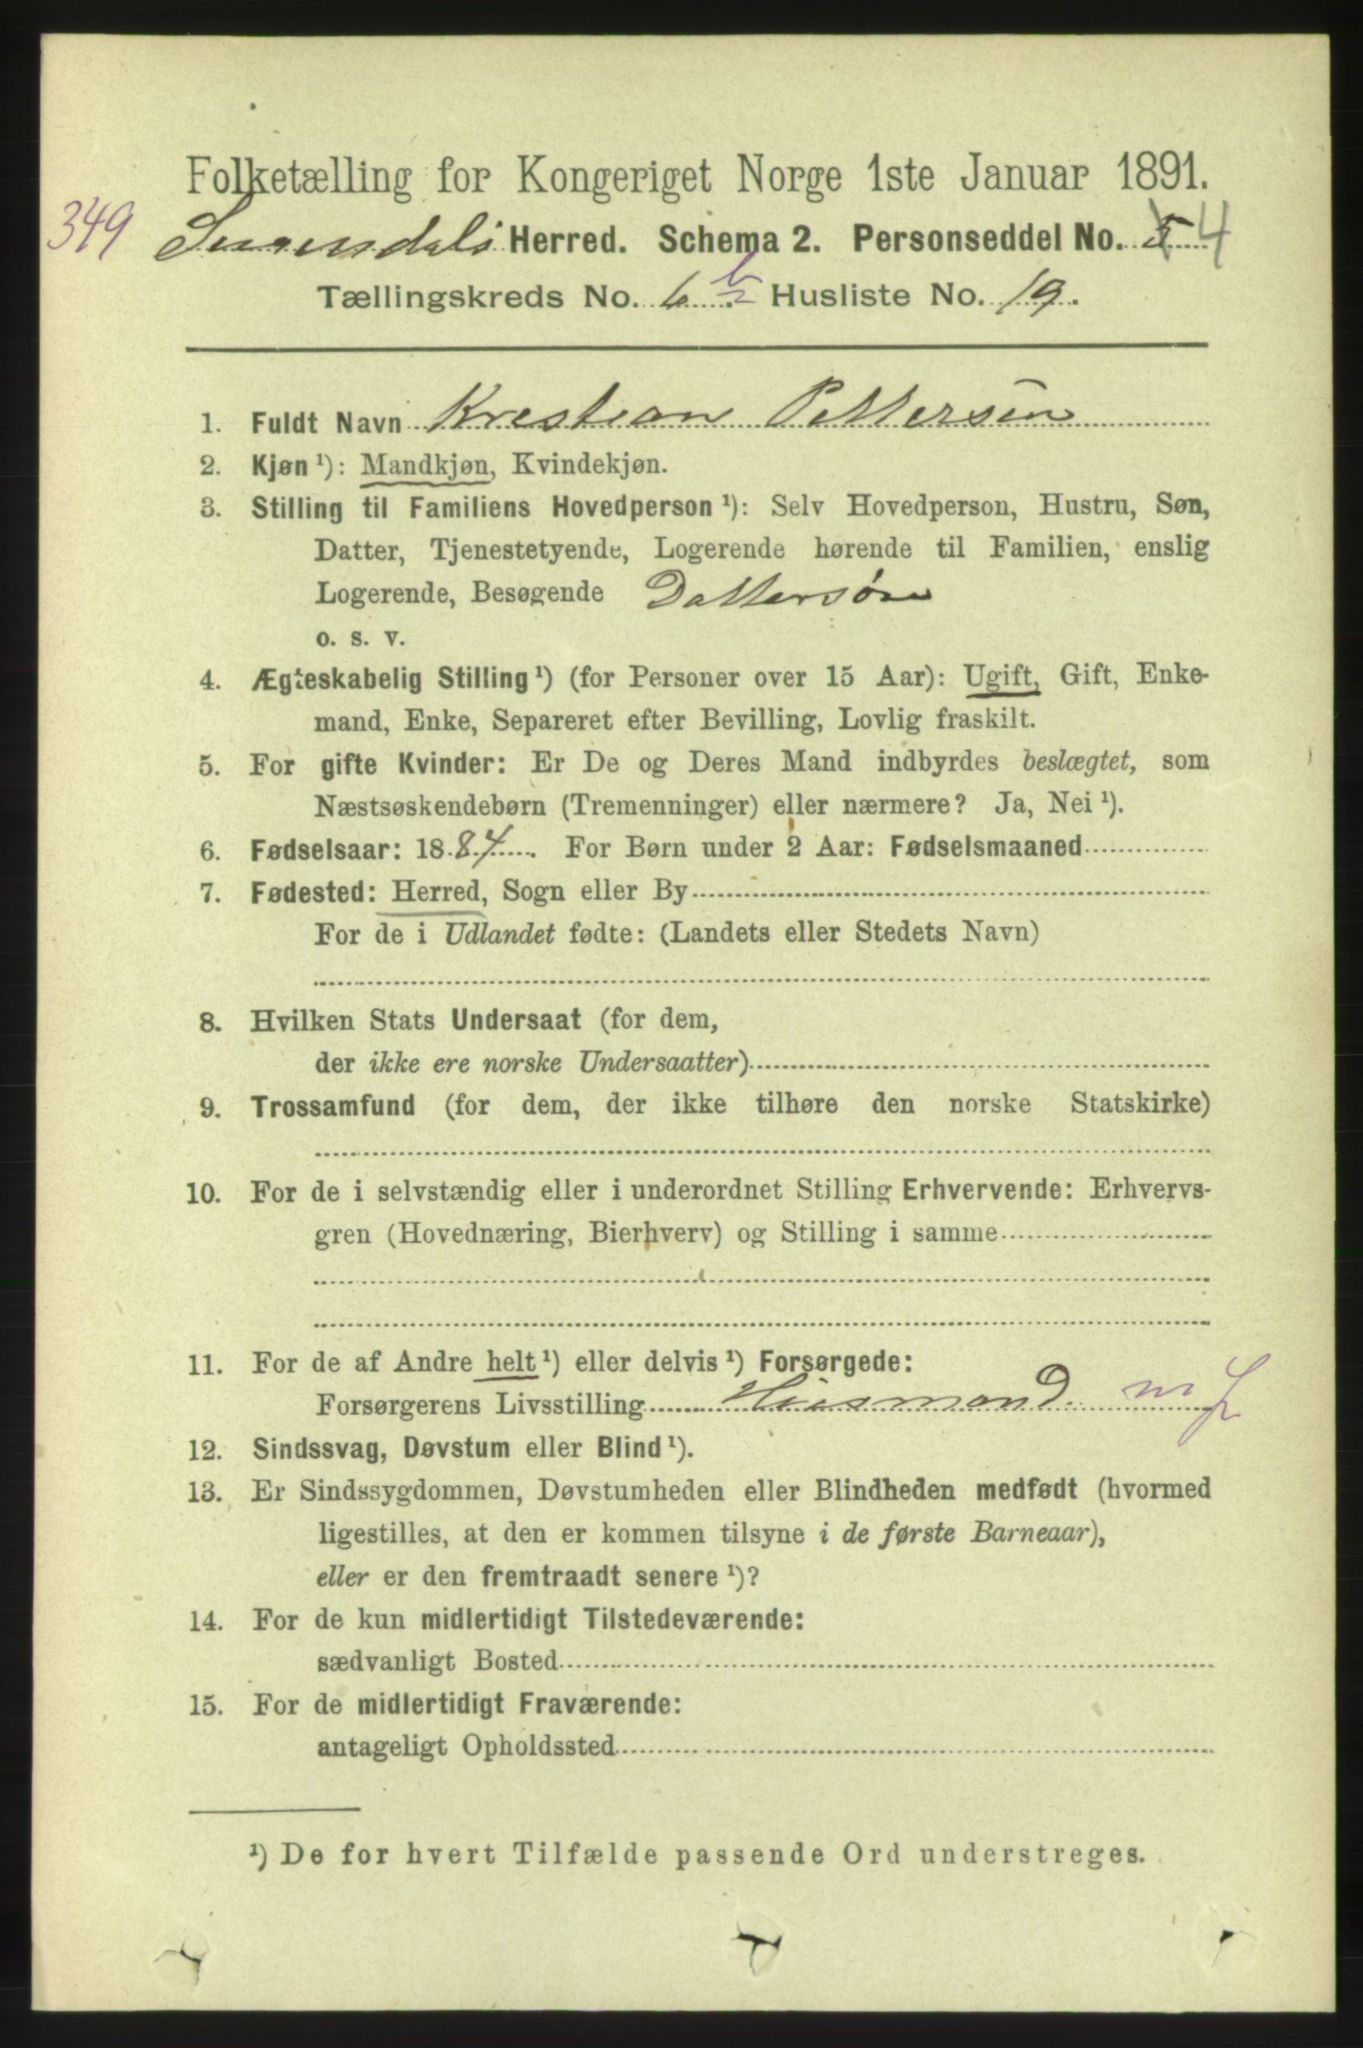 Folketælling for Kongeriget Norge 1ste Januar 1891.
349 Surendals Herred. Schema 2. Personseddel No. 5 4
Tællingskreds No. 6 b Husliste No. 19.
1. Fuldt Navn Krestian Pettersen
2. Kjøn ¹): Mandkjøn, Kvindekjøn.
3. Stilling til Familiens Hovedperson ¹): Selv Hovedperson, Hustru, Søn,
Datter, Tjenestetyende, Logerende hørende til Familien, enslig
Logerende, Besøgende Dattersøn
o. s. v.
4. Ægteskabelig Stilling ¹) (for Personer over 15 Aar): Ugift, Gift, Enke-
mand, Enke, Separeret efter Bevilling, Lovlig fraskilt.
5. For gifte Kvinder: Er De og Deres Mand indbyrdes beslægtet, som
Næstsøskendebørn (Tremenninger) eller nærmere? Ja, Nei ¹).
6. Fødselsaar: 1884. For Børn under 2 Aar: Fødselsmaaned
7. Fødested: Herred, Sogn eller By
For de i Udlandet fødte: (Landets eller Stedets Navn)
8. Hvilken Stats Undersaat (for dem,
der ikke ere norske Undersaatter)
9. Trossamfund (for dem, der ikke tilhøre den norske Statskirke)
10. For de i selvstændig eller i underordnet Stilling Erhvervende: Erhvervs-
gren (Hovednæring, Bierhverv) og Stilling i samme
11. For de af Andre helt ¹) eller delvis ¹) Forsørgede:
Forsørgerens Livsstilling Husmand m f
12. Sindssvag, Døvstum eller Blind ¹).
13. Er Sindssygdommen, Døvstumheden eller Blindheden medfødt (hvormed
ligestilles, at den er kommen tilsyne i de første Barneaar),
eller er den fremtraadt senere ¹)?
14. For de kun midlertidigt Tilstedeværende:
sædvanligt Bosted
15. For de midlertidigt Fraværende:
antageligt Opholdssted
¹) De for hvert Tilfælde passende Ord understreges.